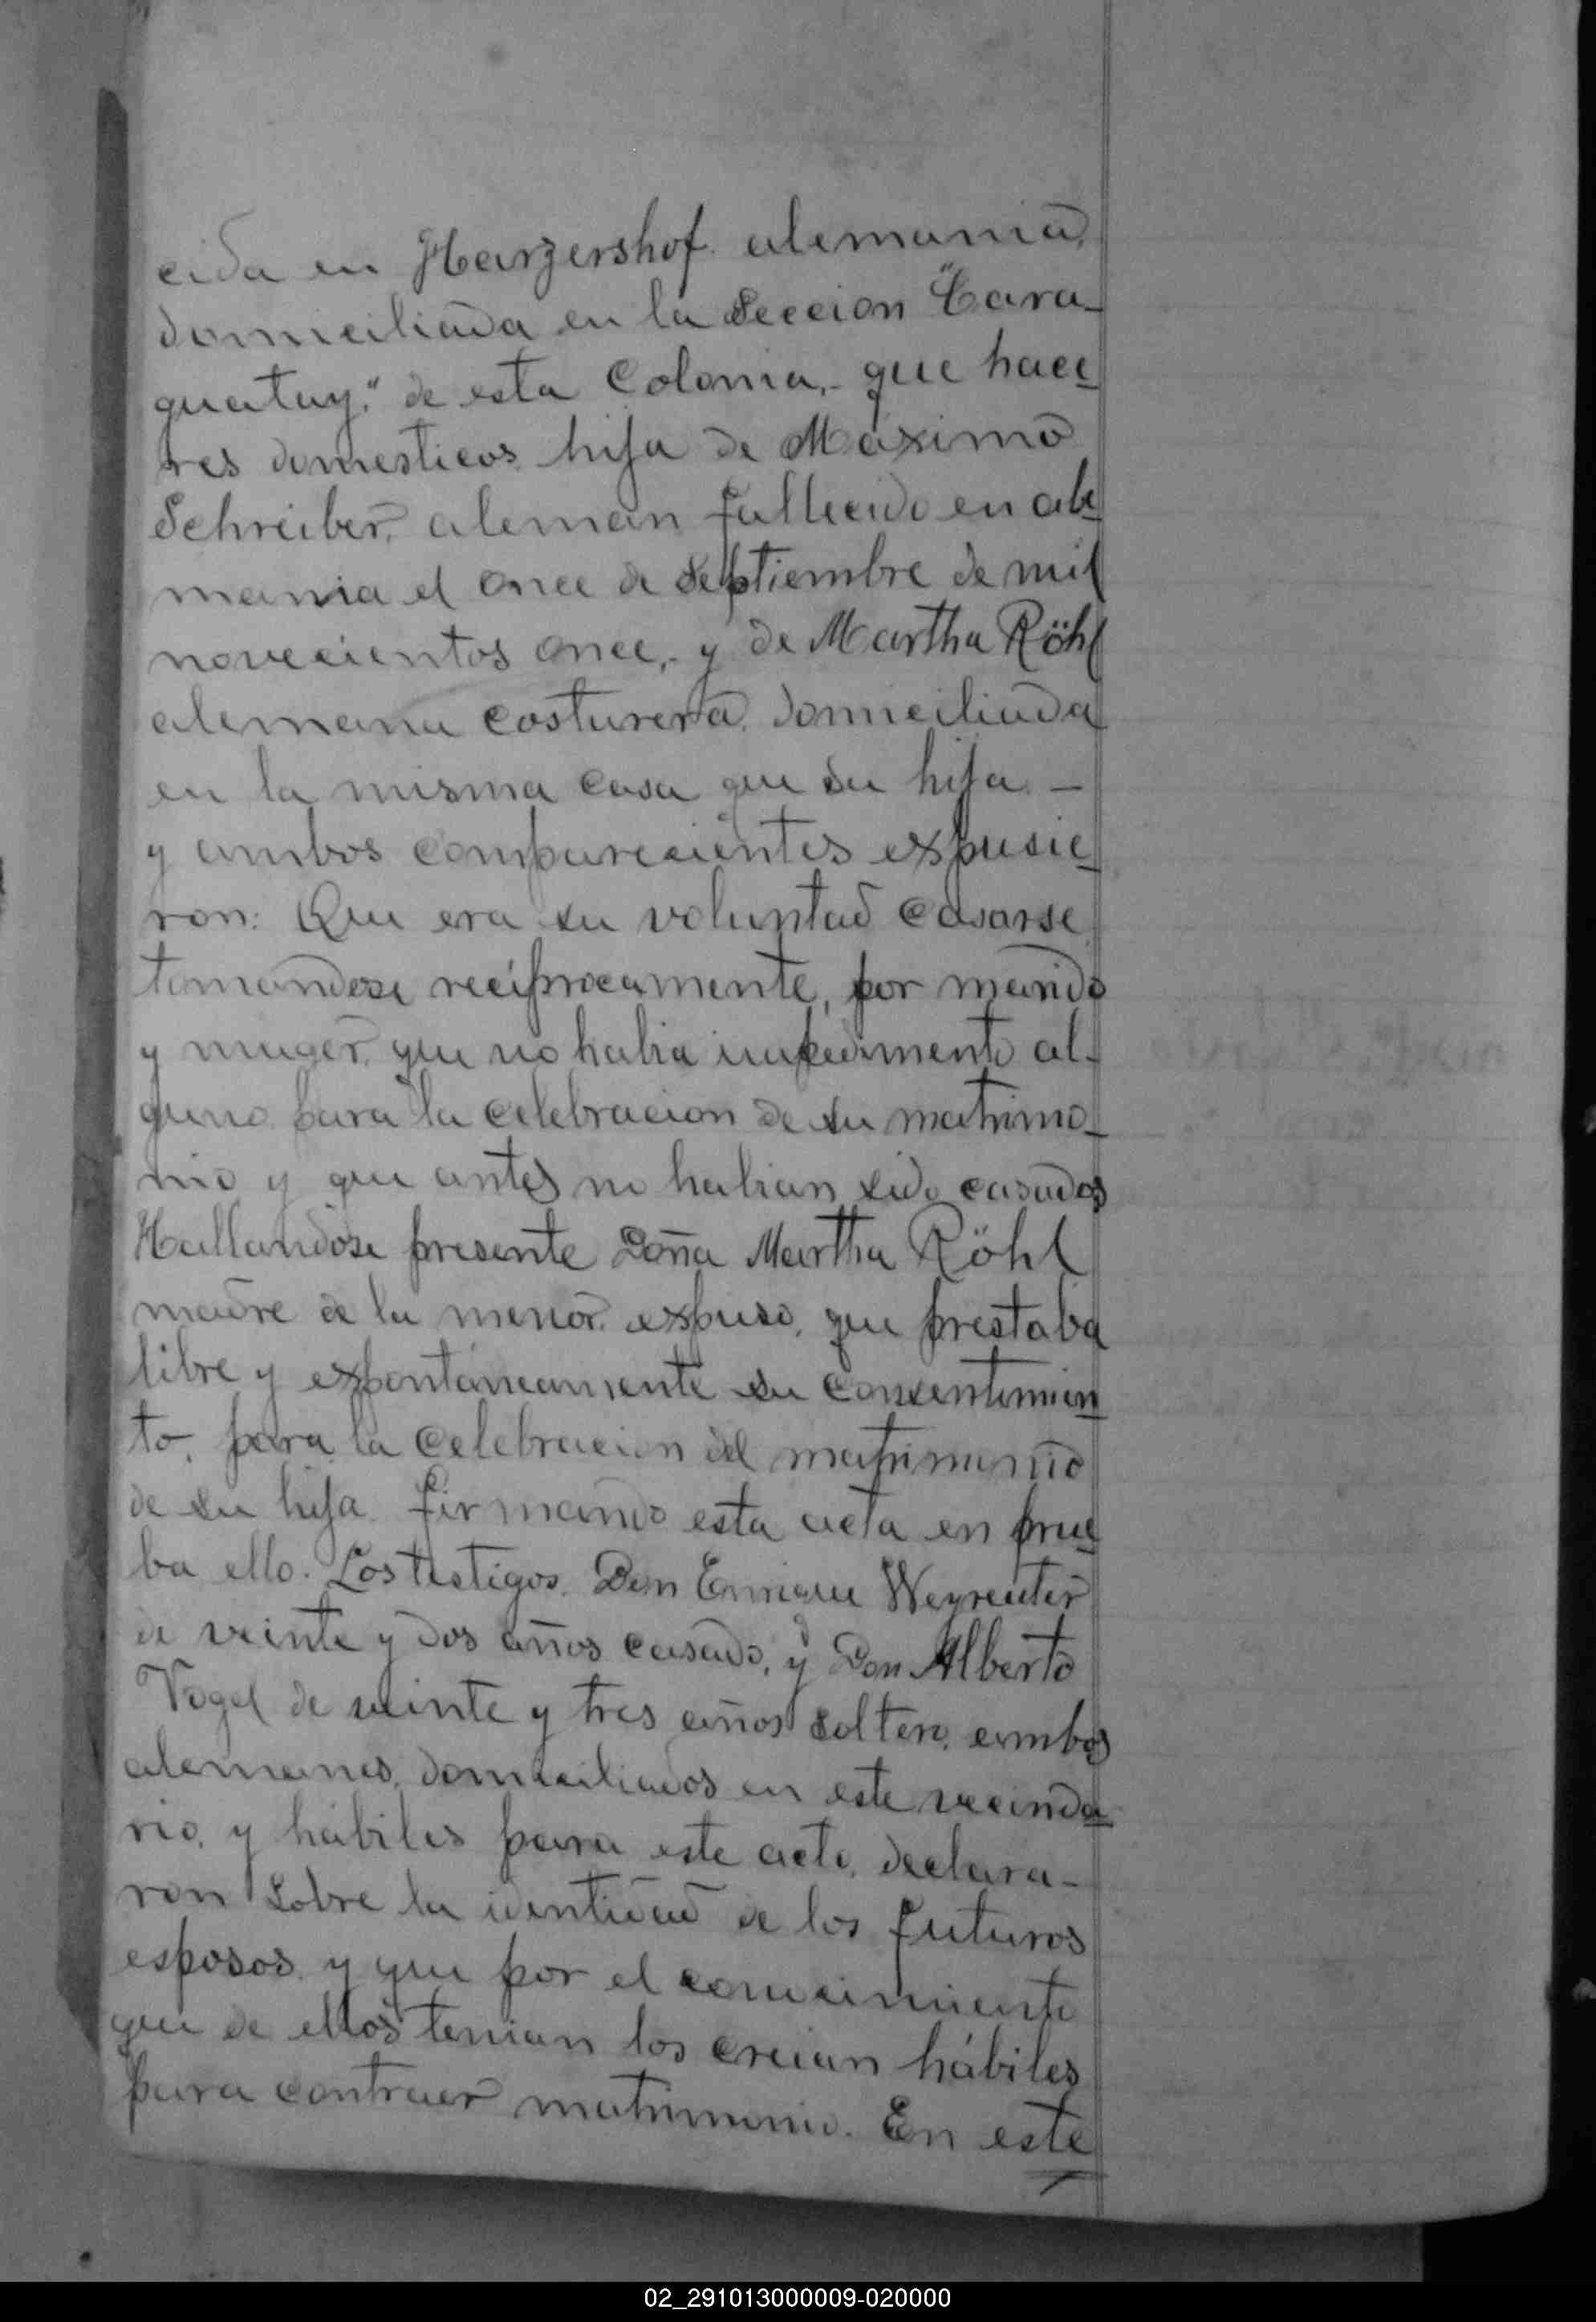 cida en Harzershof. alemania,
domiciliada en la Seccion "Cara-
guatay," de esta Colonia,- que hace
res domesticos, hija de Máximo
Schreiber, aleman fallecido en ale
mania el once de Septiembre de mil
novecientos once,- y de Martha Röhl
alemana costurera, domiciliada
en la misma casa que su hija. -
y ambos comparecientes expusie
ron: Que era su voluntad casarse
tomandose recíprocamente, por marido
y muger, que no habia impedimento al-
guno para la celebracion de su matrimo-
nio y que antes no habian sido casados
Hallandose presente Doña Martha Röhl
madre de la menor, expuso, que prestaba
libre y expontáneamente su consentimien
to, para la celebracion del matrimonio
de su hija firmando esta acta en prue
ba ello. Los testigos. Don Enrique Weyreuter
de veinte y dos años casado, y Don Alberto
Vogel de veinte y tres años soltero, ambos
alemanes, domiciliados en este vecinda
rio, y hábiles para este acto, declara-
ron sobre la identidad de los futuros
esposos y que por el conocimiento
que de ellos tenian los creian hábiles
para contraer matrimonio. En este
02_291013000009-020000